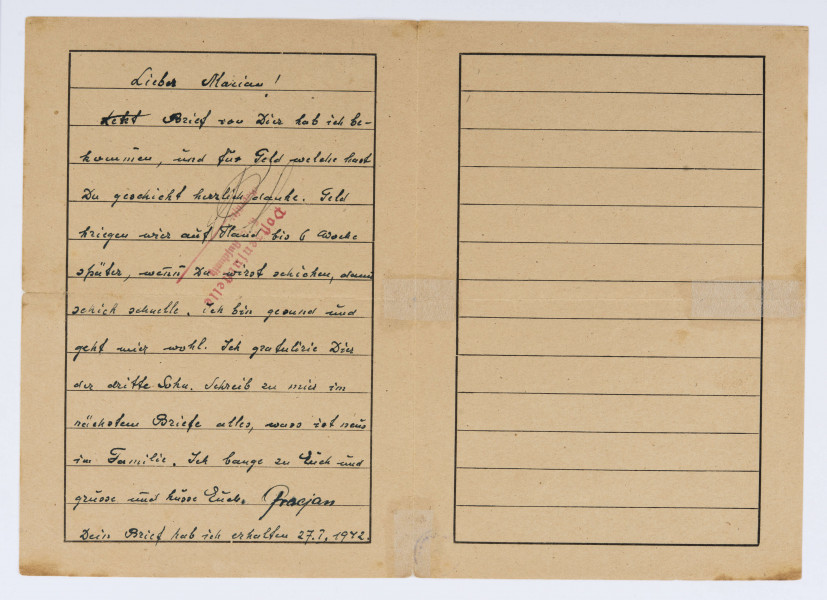 Lieber Marian!
Brief von Dier hab ich be-
kommen, und für Geld welche hast
Du geschickt herzlich danke. Geld
kriegen wier auf Hand bis 6 Woche
später, wenn Du wirst schicken, dann
schick schnelle. ich bin gesund und
geht mier wohl. Ich gratulirie Dier
der dritte Sohn. Schreib zu mier im
nächstem Briefe alles, wass ist neus
im Familie. Ich bange zu Euch und
grüsse und küsse Euch.
Dein Brief hab ich erhalten 27.I.1942.
Postzensurstelle